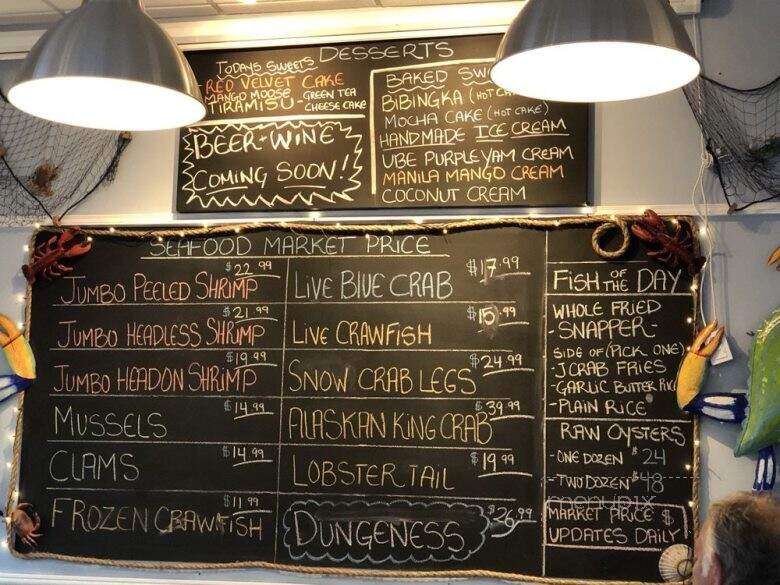 DESSERTS
TODAYS SWEETS
RED VELVET CAKE
MANGO MOOSE GREEN TEA
TIRAMISU - CHEESE CAKE
BEER-WINE
COMING SOON!!
BAKED
BIBINGKA (HOT
MOCHA CAKE (HOT CAKE)
HANDMADE ICE CREAM
UBE PURPLE YAM CREAM
MANILA MANGO CREAM
COCONUT CREAM
SEAFOOD MARKET PRICE
JUMBO PEELED SHRIMP $22.99
JUMBO HEADLESS SHRIMP $21.99
JUMBO HEADON SHRIMP $19.99
MUSSELS $14.99
CLAMS $14.99
FROZEN CRAWFISH $11.99
LIVE BLUE CRAB $17.99
LIVE CRAWFISH $15.99
SNOW CRAB LEGS $24.99
ALASKAN KING CRAB $39.99
LOBSTER TAIL $19.99
DUNGENESS $26.99
FISH OF THE DAY
WHOLE FRIED
-SNAPPER-
SIDE OF (PICK ONE)
-JCRAB FRIES
-GARLIC BUTTER RICE
-PLAIN RICE
RAW OYSTERS
-ONE DOZEN $24
-TWO DOZEN $48
menupix
MARKET PRICE $
UPDATES DAILY